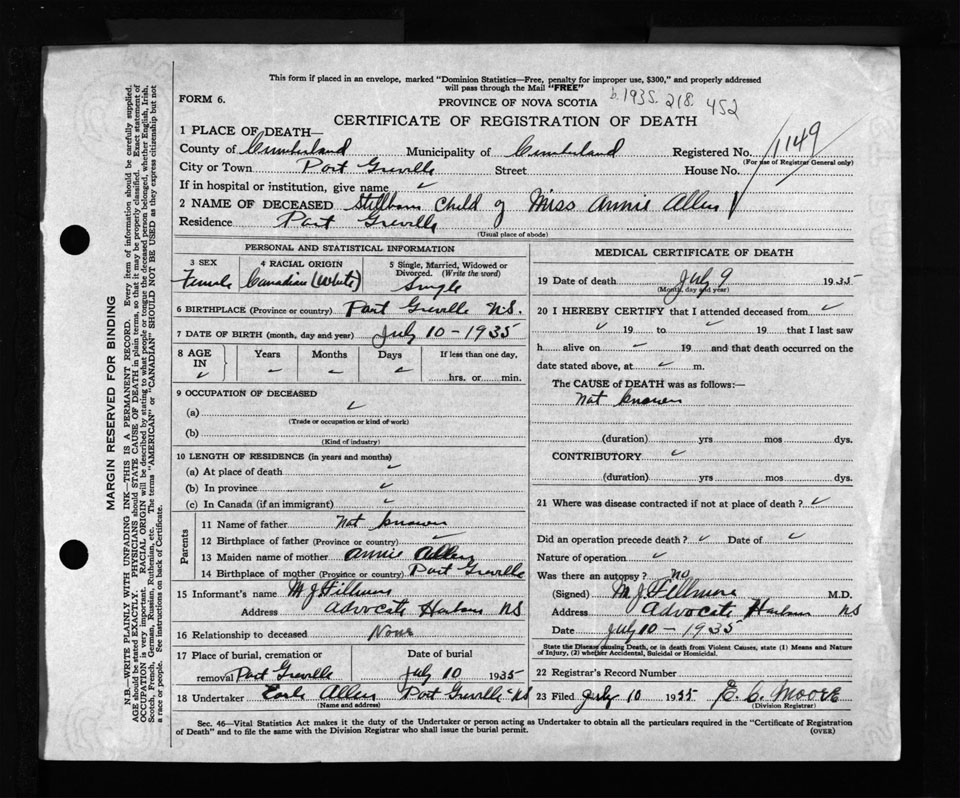 This form if placed in an envelope, marked "Dominion Statistics—Free, penalty for improper use, $300," and properly addressed
will pass through the Mail "FREE"
b. 1935. 218. 452
FORM 6.
PROVINCE OF NOVA SCOTIA
CERTIFICATE OF REGISTRATION OF DEATH
1 PLACE OF DEATH—
County of Cumberland Municipality of Cumberland Registered No. 1149
(For use of Registrar General only)
City or Town Port Greville Street House No.
If in hospital or institution, give name ✓
2 NAME OF DECEASED Stillborn child of Miss Annie Allen
Residence Port Greville
(Usual place of abode)
PERSONAL AND STATISTICAL INFORMATION
3 SEX
Female
4 RACIAL ORIGIN
Canadian (White)
5 Single, Married, Widowed or
Divorced. (Write the word)
Single
6 BIRTHPLACE (Province or country) Port Greville NS.
7 DATE OF BIRTH (month, day and year) July 10 - 1935
8 AGE IN ✓
Years Months Days If less than one day,
hrs. or min.
9 OCCUPATION OF DECEASED
(a) ✓
(Trade or occupation or kind of work)
(b)
(Kind of industry)
10 LENGTH OF RESIDENCE (in years and months)
(a) At place of death ✓
(b) In province ✓
(c) In Canada (if an immigrant) ✓
Parents
11 Name of father Not known
12 Birthplace of father (Province or country) ✓
13 Maiden name of mother Annie Allen
14 Birthplace of mother (Province or country) Port Greville
15 Informant's name M J Fillmore
Address Advocate Harbour NS
16 Relationship to deceased None
17 Place of burial, cremation or Date of burial
removal Port Greville July 10 1935
18 Undertaker Earle Allen Port Greville NS
(Name and address)
MEDICAL CERTIFICATE OF DEATH
19 Date of death July 9 1935
(Month, day and year)
20 I HEREBY CERTIFY that I attended deceased from ✓
✓ 19 to ✓ 19 that I last saw
h alive on ✓ 19 and that death occurred on the
date stated above, at ✓ m.
The CAUSE of DEATH was as follows:—
Not known
(duration) yrs mos dys.
CONTRIBUTORY ✓
(duration) yrs mos dys.
21 Where was disease contracted if not at place of death? ✓
Did an operation precede death? ✓ Date of ✓
Nature of operation ✓
Was there an autopsy? No
(Signed) M J Fillmore M.D.
Address Advocate Harbour NS
Date July 10 - 1935
State the Disease causing Death, or in death from Violent Causes, state (1) Means and Nature
of Injury, (2) whether Accidental, Suicidal or Homicidal.
22 Registrar's Record Number
23 Filed July 10 1935 E. C. Moore
(Division Registrar)
Sec. 46—Vital Statistics Act makes it the duty of the Undertaker or person acting as Undertaker to obtain all the particulars required in the "Certificate of Registration
of Death" and to file the same with the Division Registrar who shall issue the burial permit.
(OVER)
MARGIN RESERVED FOR BINDING
N.B.—WRITE PLAINLY WITH UNFADING INK—THIS IS A PERMANENT RECORD. Every item of information should be carefully supplied.
AGE should be stated EXACTLY. PHYSICIANS should STATE CAUSE OF DEATH in plain terms, so that it may be properly classified. Exact statement of
OCCUPATION is very important. RACIAL ORIGIN will be described by stating to what people or tongue the deceased person belonged, whether English, Irish,
Scotch, French, German, Russian, Ruthenian, etc. The terms "AMERICAN" or "CANADIAN" SHOULD NOT BE USED as they express citizenship but not
a race or people. See instructions on back of Certificate.